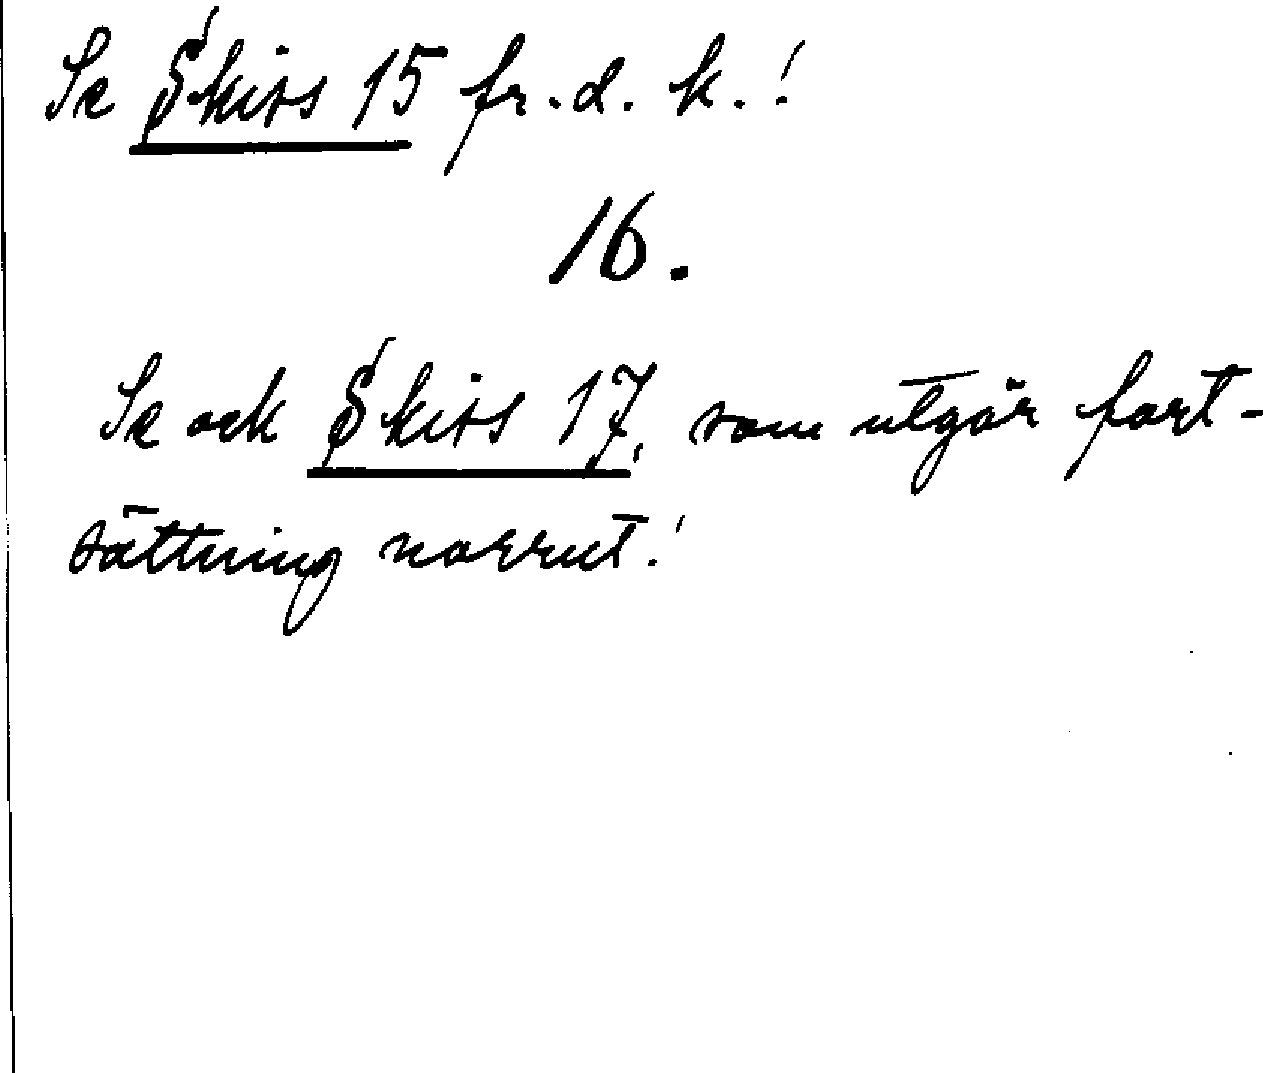 Se Skiss 15 fr. d. k.!
16.
Se ock Skiss 17, som utgör fort-
sättning norrut!